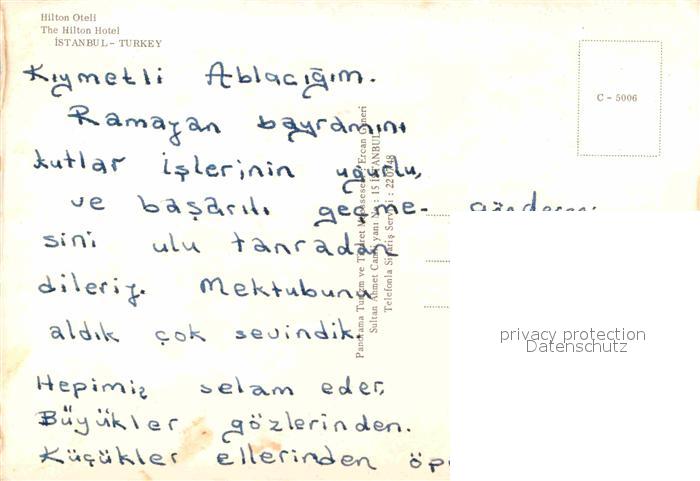 Hilton Oteli
The Hilton Hotel
İSTANBUL - TURKEY
C - 5006
Kıymetli Ablacığım.
Ramazan bayramını
kutlar işlerinin uğurlu,
ve başarılı geçme-
sini ulu tanradan
dileriz. Mektubunu
aldık çok sevindik.
Hepimiz selam eder,
Büyükler gözlerinden.
Küçükler ellerinden
Panorama Turizm ve Ticaret Müessesesi Ercan
Sultan Ahmet Camii yanı No : 15 İSTANBUL
Telefonla Sipariş Servisi : 220748
privacy protection
Datenschutz